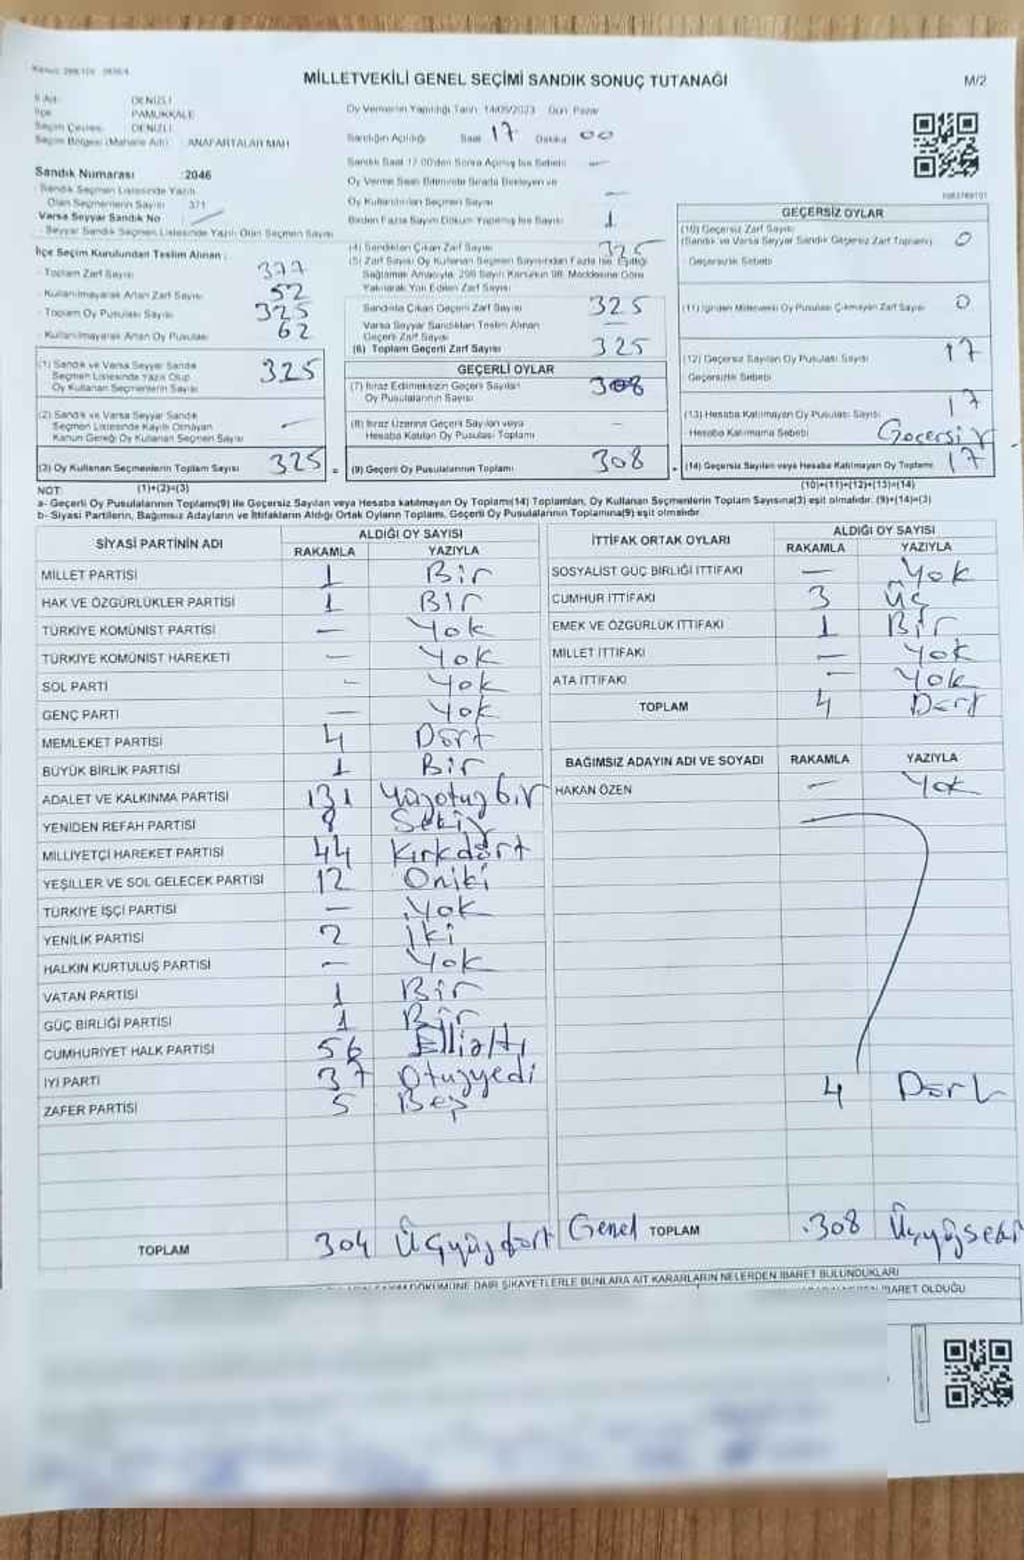 MİLLETVEKİLİ GENEL SEÇİMİ SANDIK SONUÇ TUTANAĞI
M/2
İl Adı: DENİZLİ
İlçe PAMUKKALE
Seçim Çevresi DENİZLİ
Seçim Bölgesi (Mahalle Adı) : ANAFARTALAR MAH
Sandık Numarası :2046
Sandık Seçmen Listesinde Yazılı
Olan Seçmenlerin Sayısı 371
Varsa Seyyar Sandık No
Seyyar Sandık Listesinde Yazılı Olan Seçmen Sayısı
İlçe Seçim Kurulundan Teslim Alınan :
- Toplam Zarf Sayısı 377
- Kullanılmayarak Artan Zarf Sayısı 52
- Toplam Oy Pusulası Sayısı 325
- Kullanılmayarak Artan Oy Pusulası 62
(1) Sandık ve Varsa Seyyar Sandık
Seçmen Listesinde Yazılı Olup
Oy Kullanan Seçmenlerin Sayısı 325
(2) Sandık ve Varsa Seyyar Sandık
Seçmen Listesinde Kayıtlı Olmayan
Kanun Gereği Oy Kullanan Seçmen Sayısı —
(3) Oy Kullanan Seçmenlerin Toplam Sayısı 325 =
Oy Vermenin Yapıldığı Tarih 14/05/2023 Gün Pazar
Sandığın Açıldığı Saat 17 Dakika 00
Sandık Saat 17.00'den Sonra Açılmış İse Sebebi —
Oy Verme Saati Bitiminde Sırada Bekleyen ve
Oy Kullandırılan Seçmen Sayısı —
Birden Fazla Sayım Döküm Yapılmış İse Sayısı 1
(4) Sandıktan Çıkan Zarf Sayısı 325
(5) Zarf Sayısı Oy Kullanan Seçmen Sayısından Fazla İse, Eşitliği
Sağlamak Amacıyla, 298 Sayılı Kanunun 98. Maddesine Göre
Yakılarak Yok Edilen Zarf Sayısı
Sandıkta Çıkan Geçerli Zarf Sayısı 325
Varsa Seyyar Sandıktan Teslim Alınan
Geçerli Zarf Sayısı —
(6) Toplam Geçerli Zarf Sayısı 325
GEÇERLİ OYLAR
(7) İtiraz Edilmeksizin Geçerli Sayılan
Oy Pusulalarının Sayısı 308
(8) İtiraz Üzerine Geçerli Sayılan veya
Hesaba Katılan Oy Pusulası Toplamı —
(9) Geçerli Oy Pusulalarının Toplamı 308
GEÇERSİZ OYLAR
(10) Geçersiz Zarf Sayısı
(Sandık ve Varsa Seyyar Sandık Geçersiz Zarf Toplamı) 0
Geçersizlik Sebebi
(11) İçinden Milletvekili Oy Pusulası Çıkmayan Zarf Sayısı 0
(12) Geçersiz Sayılan Oy Pusulası Sayısı 17
Geçersizlik Sebebi
(13) Hesaba Katılmayan Oy Pusulası Sayısı 17
- Hesaba Katılmama Sebebi Geçersiz
(14) Geçersiz Sayılan veya Hesaba Katılmayan Oy Toplamı 17
NOT: (1)+(2)=(3) (10)+(11)+(12)+(13)=(14)
a- Geçerli Oy Pusulalarının Toplamı(9) ile Geçersiz Sayılan veya Hesaba katılmayan Oy Toplamı(14) Toplamları, Oy Kullanan Seçmenlerin Toplam Sayısına(3) eşit olmalıdır. (9)+(14)=(3)
b- Siyasi Partilerin, Bağımsız Adayların ve İttifakların Aldığı Ortak Oyların Toplamı, Geçerli Oy Pusulalarının Toplamına(9) eşit olmalıdır
SİYASİ PARTİNİN ADI ALDIĞI OY SAYISI
RAKAMLA YAZIYLA
MİLLET PARTİSİ 1 Bir
HAK VE ÖZGÜRLÜKLER PARTİSİ 1 Bir
TÜRKİYE KOMÜNİST PARTİSİ — Yok
TÜRKİYE KOMÜNİST HAREKETİ — Yok
SOL PARTİ — Yok
GENÇ PARTİ — Yok
MEMLEKET PARTİSİ 4 Dört
BÜYÜK BİRLİK PARTİSİ 1 Bir
ADALET VE KALKINMA PARTİSİ 131 Yüzotuzbir
YENİDEN REFAH PARTİSİ 8 Sekiz
MİLLİYETÇİ HAREKET PARTİSİ 44 Kırkdört
YEŞİLLER VE SOL GELECEK PARTİSİ 12 Oniki
TÜRKİYE İŞÇİ PARTİSİ — Yok
YENİLİK PARTİSİ 2 İki
HALKIN KURTULUŞ PARTİSİ — Yok
VATAN PARTİSİ 1 Bir
GÜÇ BİRLİĞİ PARTİSİ 1 Bir
CUMHURİYET HALK PARTİSİ 56 Ellialtı
İYİ PARTİ 37 Otuzyedi
ZAFER PARTİSİ 5 Beş
TOPLAM 304 Üçyüzdört
İTTİFAK ORTAK OYLARI ALDIĞI OY SAYISI
RAKAMLA YAZIYLA
SOSYALİST GÜÇ BİRLİĞİ İTTİFAKI — Yok
CUMHUR İTTİFAKI 3 Üç
EMEK VE ÖZGÜRLÜK İTTİFAKI 1 Bir
MİLLET İTTİFAKI — Yok
ATA İTTİFAKI — Yok
TOPLAM 4 Dört
BAĞIMSIZ ADAYIN ADI VE SOYADI RAKAMLA YAZIYLA
HAKAN ÖZEN — Yok
4 Dört
Genel TOPLAM 308 Üçyüzseki
DÖKÜMÜNE DAİR ŞİKAYETLERLE BUNLARA AİT KARARLARIN NELERDEN İBARET BULUNDUKLARI
İBARET OLDUĞU